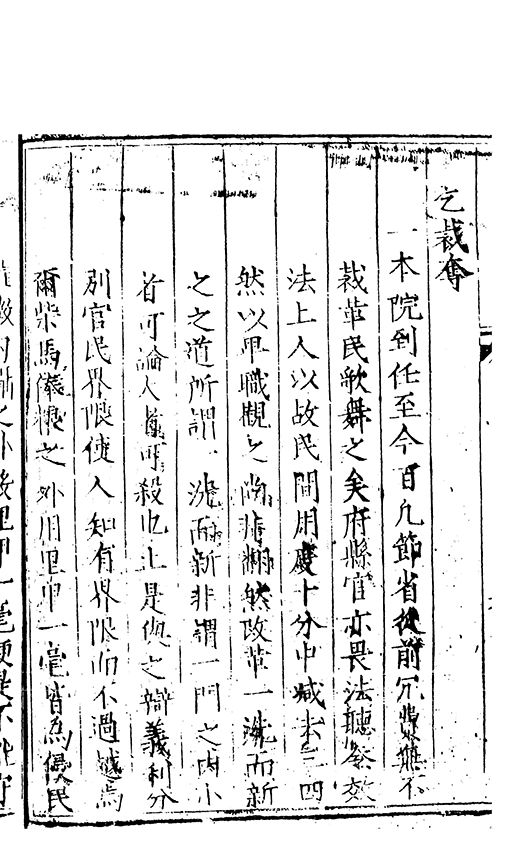 乞裁奪
一本院到任至今百凡節省從前冗費無不
裁革民歌舞之矣府縣官亦畏法聽參效
法上人以故民間用度十分中減去三四
然以卑職觀之尚非翻然改革一洗而新
之之道所謂一洗而新非謂一門之內小
者可論人者可殺也止是與之辯義利分
別官民界限使人知有界限而不過越焉
爾柴馬儀糧之外用里甲一毫皆為侵民
之外後里甲一毫便是不能守